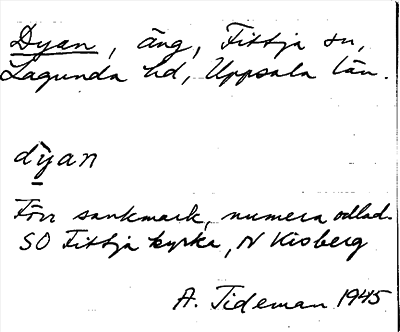 Dyan, äng, Fittja sn,
Lagunda hd, Uppsala län.
dy̖an
Förr sankmark, numera odlad.
SO Fittja kyrka, N Kisberg
A. Tideman 1945